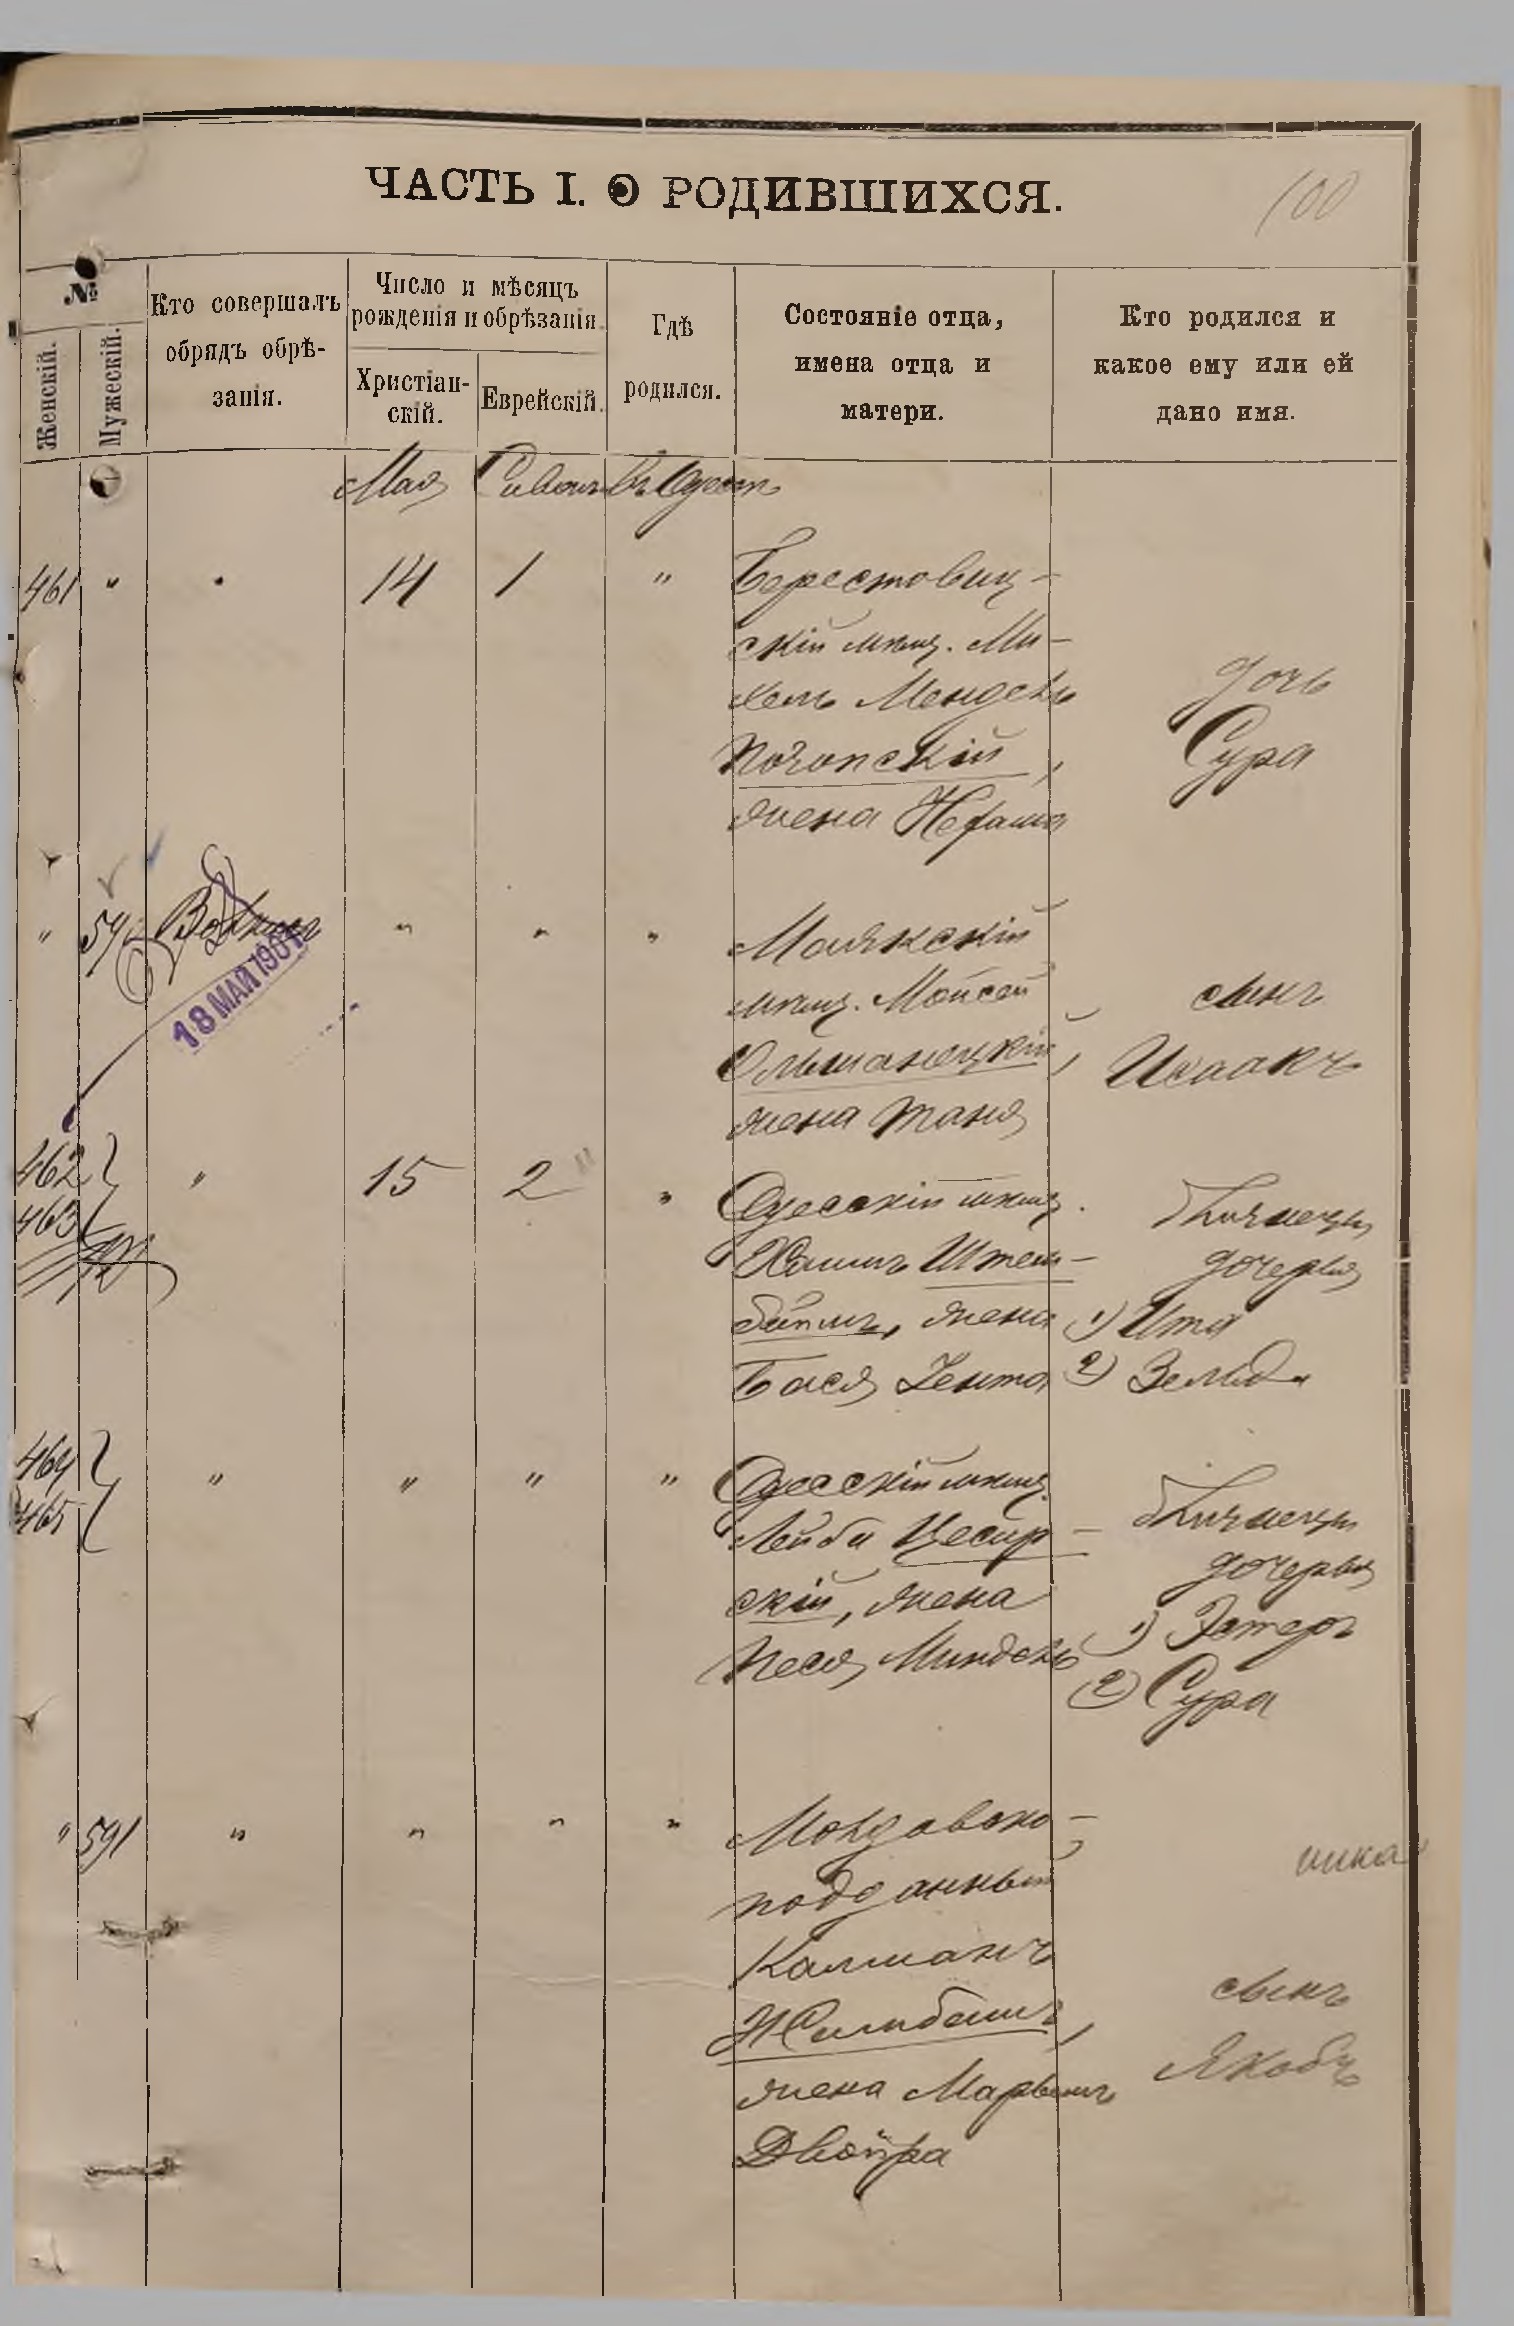 ЧАСТЬ I. О РОДИВШИХСЯ.
100
№
Женскій.
Мужескій.
Кто совершалъ
обрядъ обрѣ-
занія.
Число и мѣсяцъ
рожденія и обрѣзанія.
Христіан-
скій.
Еврейскій.
Гдѣ
родился.
Состояніе отца,
имена отца и
матери.
Кто родился и
какое ему или ей
дано имя.
Мая Сивонъ Въ Одессѣ
461 " " 14 1 "
Берестовиц-
скій мѣщ. Ми-
хель Мендель
Почопскій,
жена Нехама
дочь
Сура
" 590 " " "
18 МАЙ 190
Маякскій
мѣщ. Мойсей
Ольшанецкій,
жена Таня
сынъ
Исаакъ
462
463
" 15 2 "
Одесскій мѣщ.
Хаимъ Штейн-
жена
Бася Зента
близнецы
дочерья
1) Ита
2) Зельда
464
465
" " " "
Одесскій мѣщ.
Лейба Цесар-
скій, жена
Песя Миндель
близнецы
дочерья
1) Эстеръ
2) Сура
" 591 " " " "
Молдавско-
подданный
Калманъ
жена
Двойра
сынъ
Якобъ